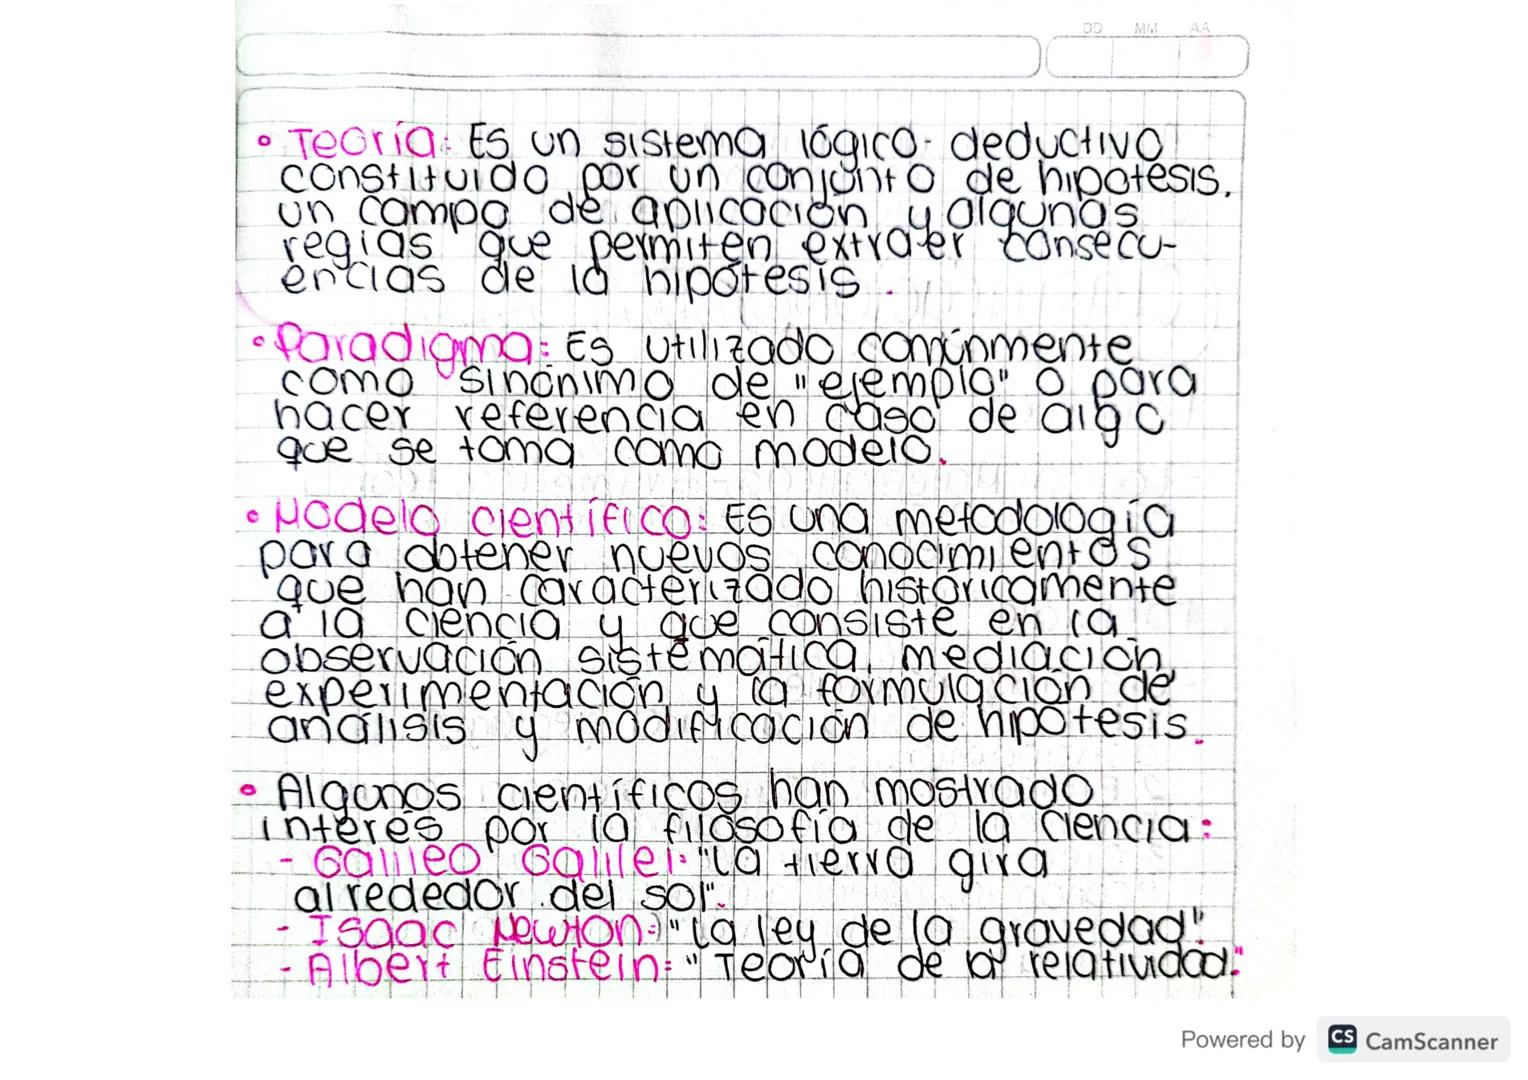 DD MM AA
• Teoría: Es un sistema lógico-deductivo
constituido por un conjunto de hipótesis,
un campo de aplicación y algunas
reglas que permiten extraer consecu-
encias de la hipótesis.
• Paradigma: Es utilizado comúnmente
como sinónimo de "ejemplo" o para
hacer referencia en caso de algo
que se toma como modelo.
• Modelo científico: Es una metodología
para obtener nuevos conocimientos
que han caracterizado históricamente
a la ciencia y que consiste en la
observación sistemática, mediación,
experimentación y la formulación de
análisis y modificación de hipótesis.
• Algunos científicos han mostrado
interés por la filosofía de la ciencia:
- Galileo Galilei: "La tierra gira
alrededor del sol".
- Isaac Newton: "La ley de la gravedad".
- Albert Einstein: "Teoría de la relatividad."
Powered by CS CamScanner